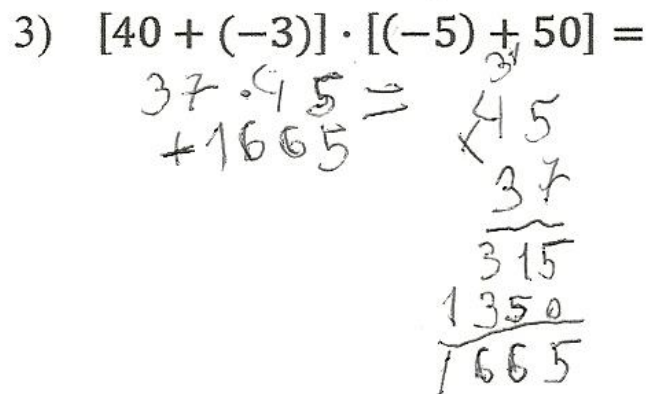 3) [40 + (−3)] · [(−5) + 50] =
37 · 45 =
+1665
3
×45
37
315
1350
1665